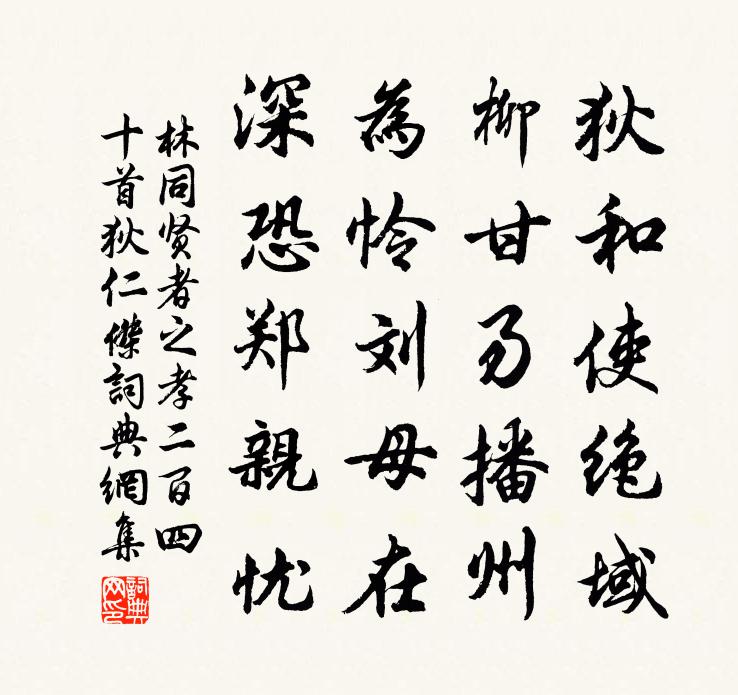 狄和使绝域
柳甘易播州
為怜刘母在
深恐郑親忧
林同贤者之孝二百四
十首狄仁傑詞典網集